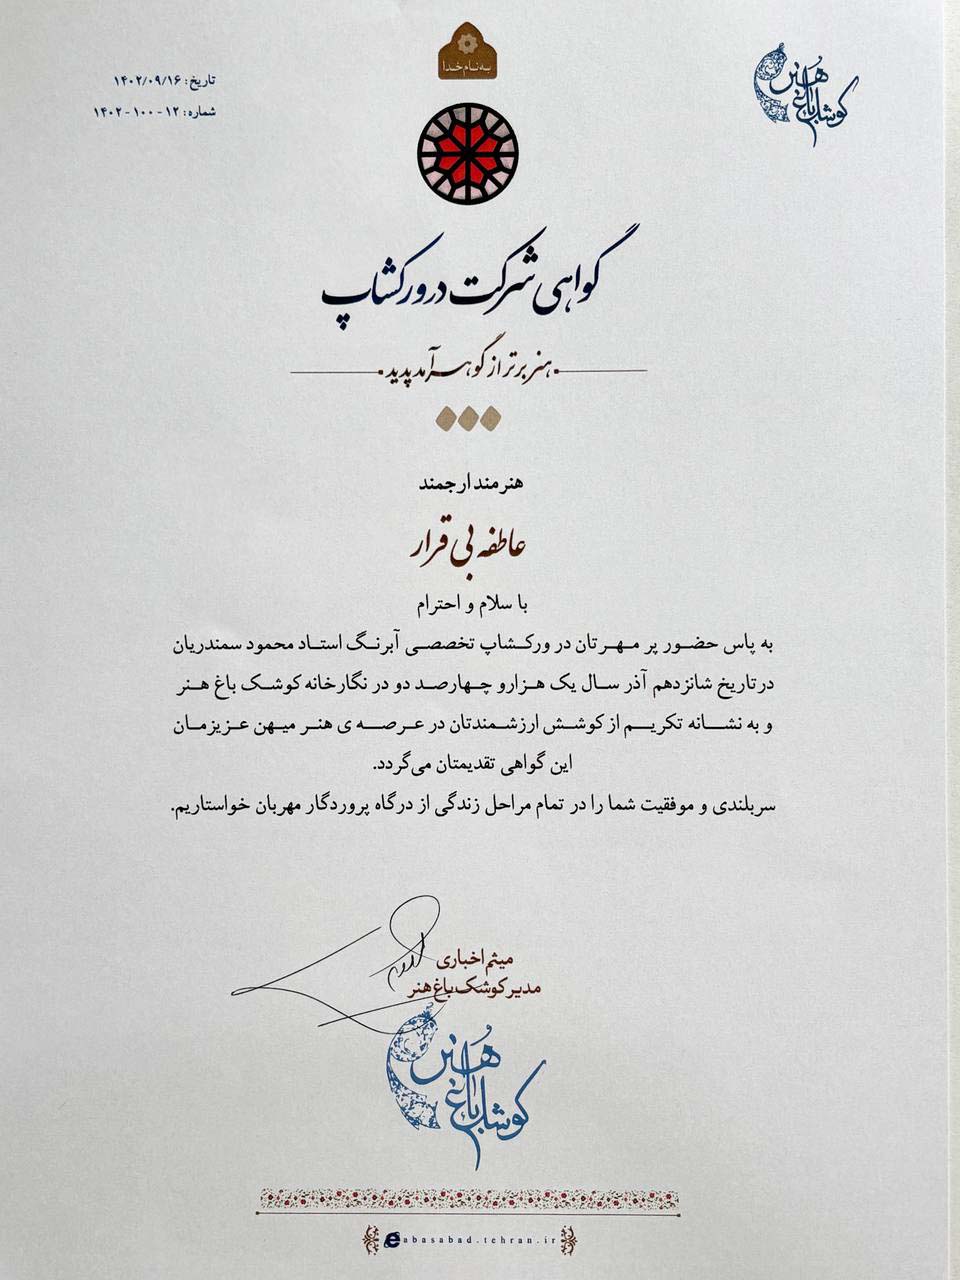 به نام خدا
تاریخ: ۱۴۰۲/۰۹/۱۶
شماره: ۱۲ - ۱۰۰ - ۱۴۰۲
کوشک باغ هنر
گواهی شرکت در ورکشاپ
هنر برتر از گوهر آمد پدید
هنرمند ارجمند
عاطفه بی قرار
با سلام و احترام
به پاس حضور پر مهرتان در ورکشاپ تخصصی آبرنگ استاد محمود سمندریان
در تاریخ شانزدهم آذر سال یک هزارو چهارصد دو در نگارخانه کوشک باغ هنر
و به نشانه تکریم از کوشش ارزشمندتان در عرصه ی هنر میهن عزیزمان
این گواهی تقدیمتان می‌گردد.
سربلندی و موفقیت شما را در تمام مراحل زندگی از درگاه پروردگار مهربان خواستاریم.
میثم اخباری
مدیر کوشک باغ هنر
کوشک باغ هنر
abasabad.tehran.ir